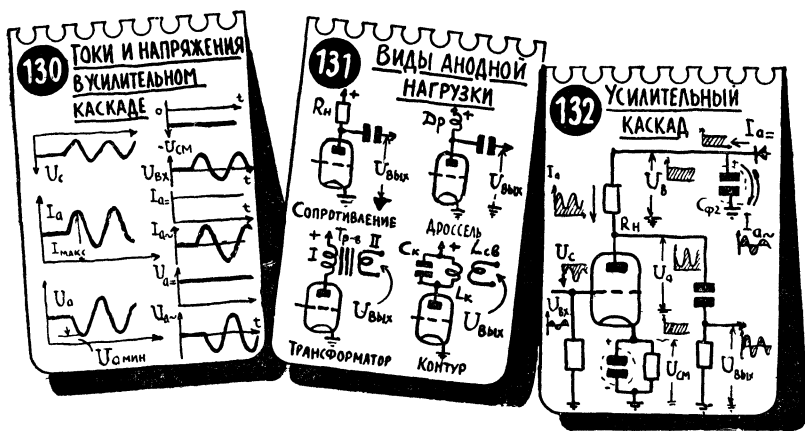 130
ТОКИ И НАПРЯЖЕНИЯ
В УСИЛИТЕЛЬНОМ
КАСКАДЕ
t
0
-Uсм
Uc
Uвх
t
Ia=
t
Ia
Iмакс
Ia~
t
Ua=
Ua
Ua~
t
Uа мин
131
ВИДЫ АНОДНОЙ
НАГРУЗКИ
+
Rн
Uвых
СОПРОТИВЛЕНИЕ
+
Др
Uвых
ДРОССЕЛЬ
+
Тр-в
I
II
Uвых
ТРАНСФОРМАТОР
+
Cк
Lсв
Lк
Uвых
КОНТУР
132
УСИЛИТЕЛЬНЫЙ
КАСКАД
Ia=
Ia
Uв
Cф2
Rн
Ia~
Uc
Ua
Uвх
+
Uсм
Uвых